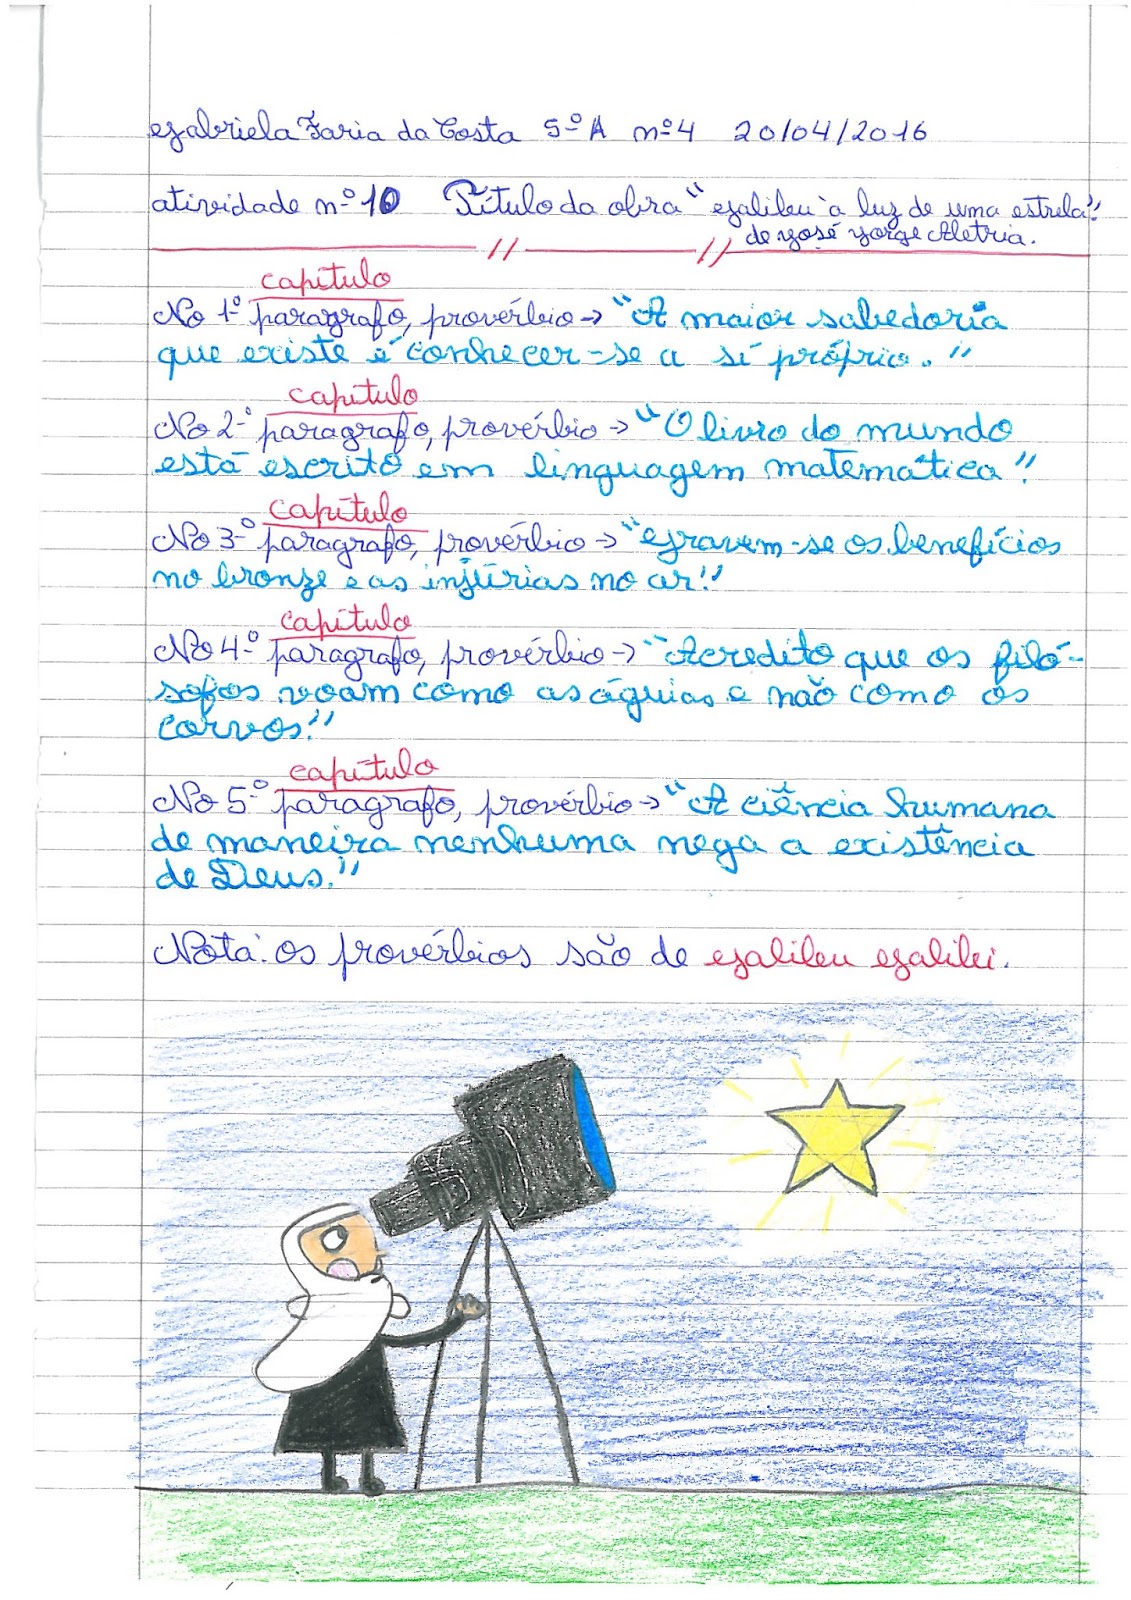 Gabriela Faria da Costa 5º A nº 4 20/04/2016
atividade nº 10 Título da obra "Galileu à luz de uma estrela".
de José Jorge Letria.
capítulo
No 1º paragrafo, provérbio → "A maior sabedoria
que existe é conhecer-se a si próprio."
capítulo
No 2º paragrafo, provérbio → "O livro do mundo
está escrito em linguagem matemática".
capítulo
No 3º paragrafo, provérbio → "Gravem-se os benefícios
no bronze e as injúrias no ar".
capítulo
No 4º paragrafo, provérbio → "Acredito que os filó-
sofos voam como as águias e não como os
corvos."
capítulo
No 5º paragrafo, provérbio → "A ciência humana
de maneira nenhuma nega a existência
de Deus."
Nota: os provérbios são de Galileu Galilei.